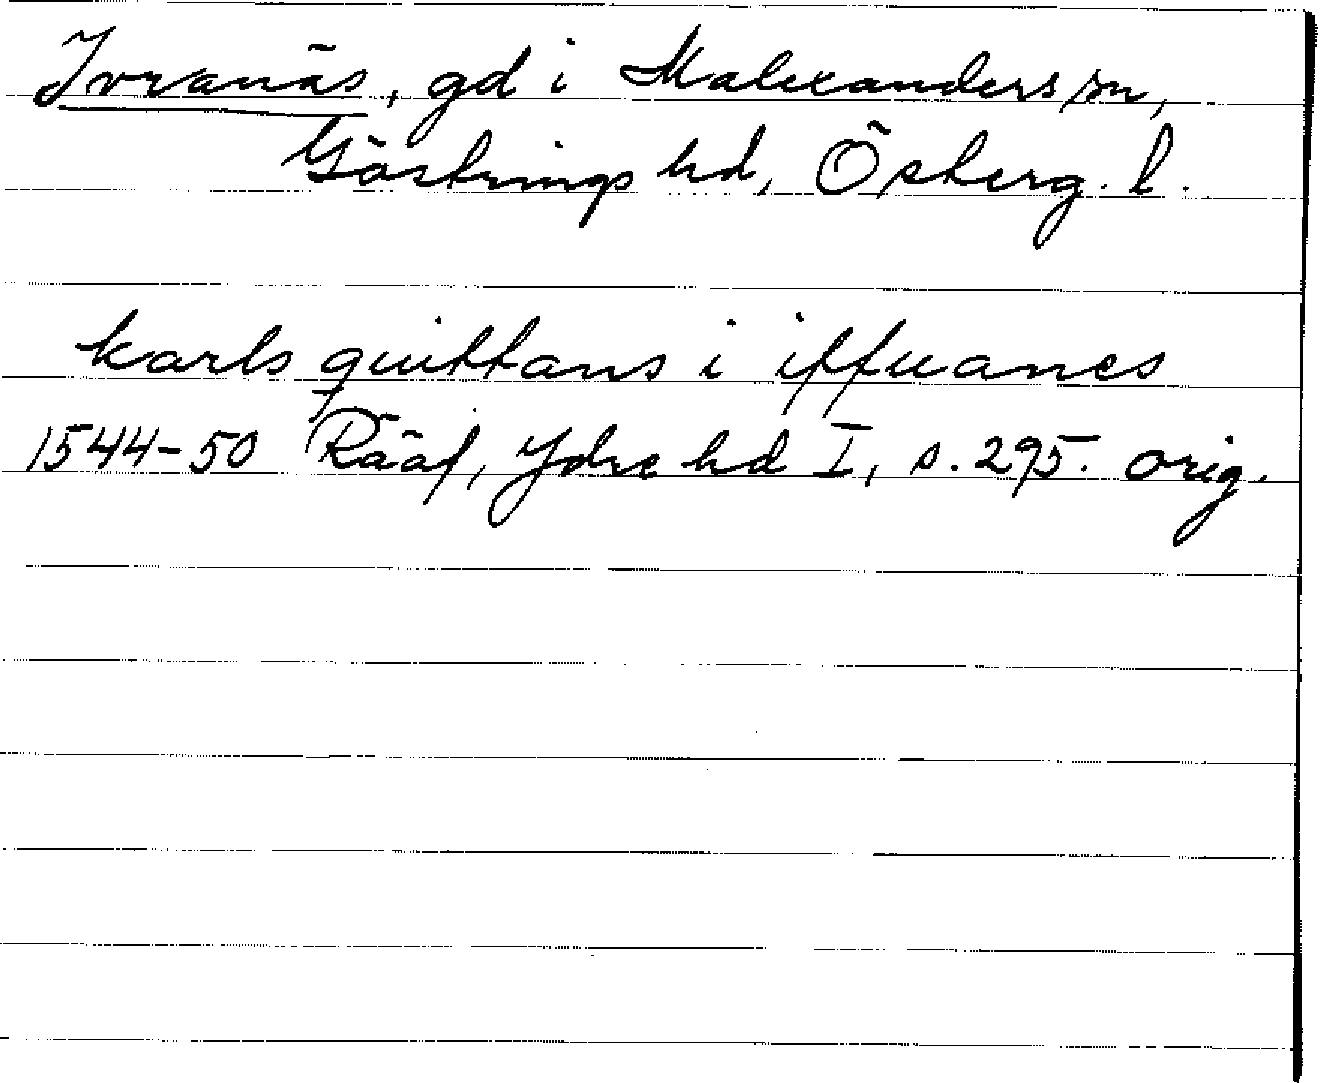 Ivranäs, gd i Malexanders sn,
Göstrings hd, Östberg. l.
karls quittans i iffuanes
1544-50 Rääf, Ydre hd I, s. 295. orig.